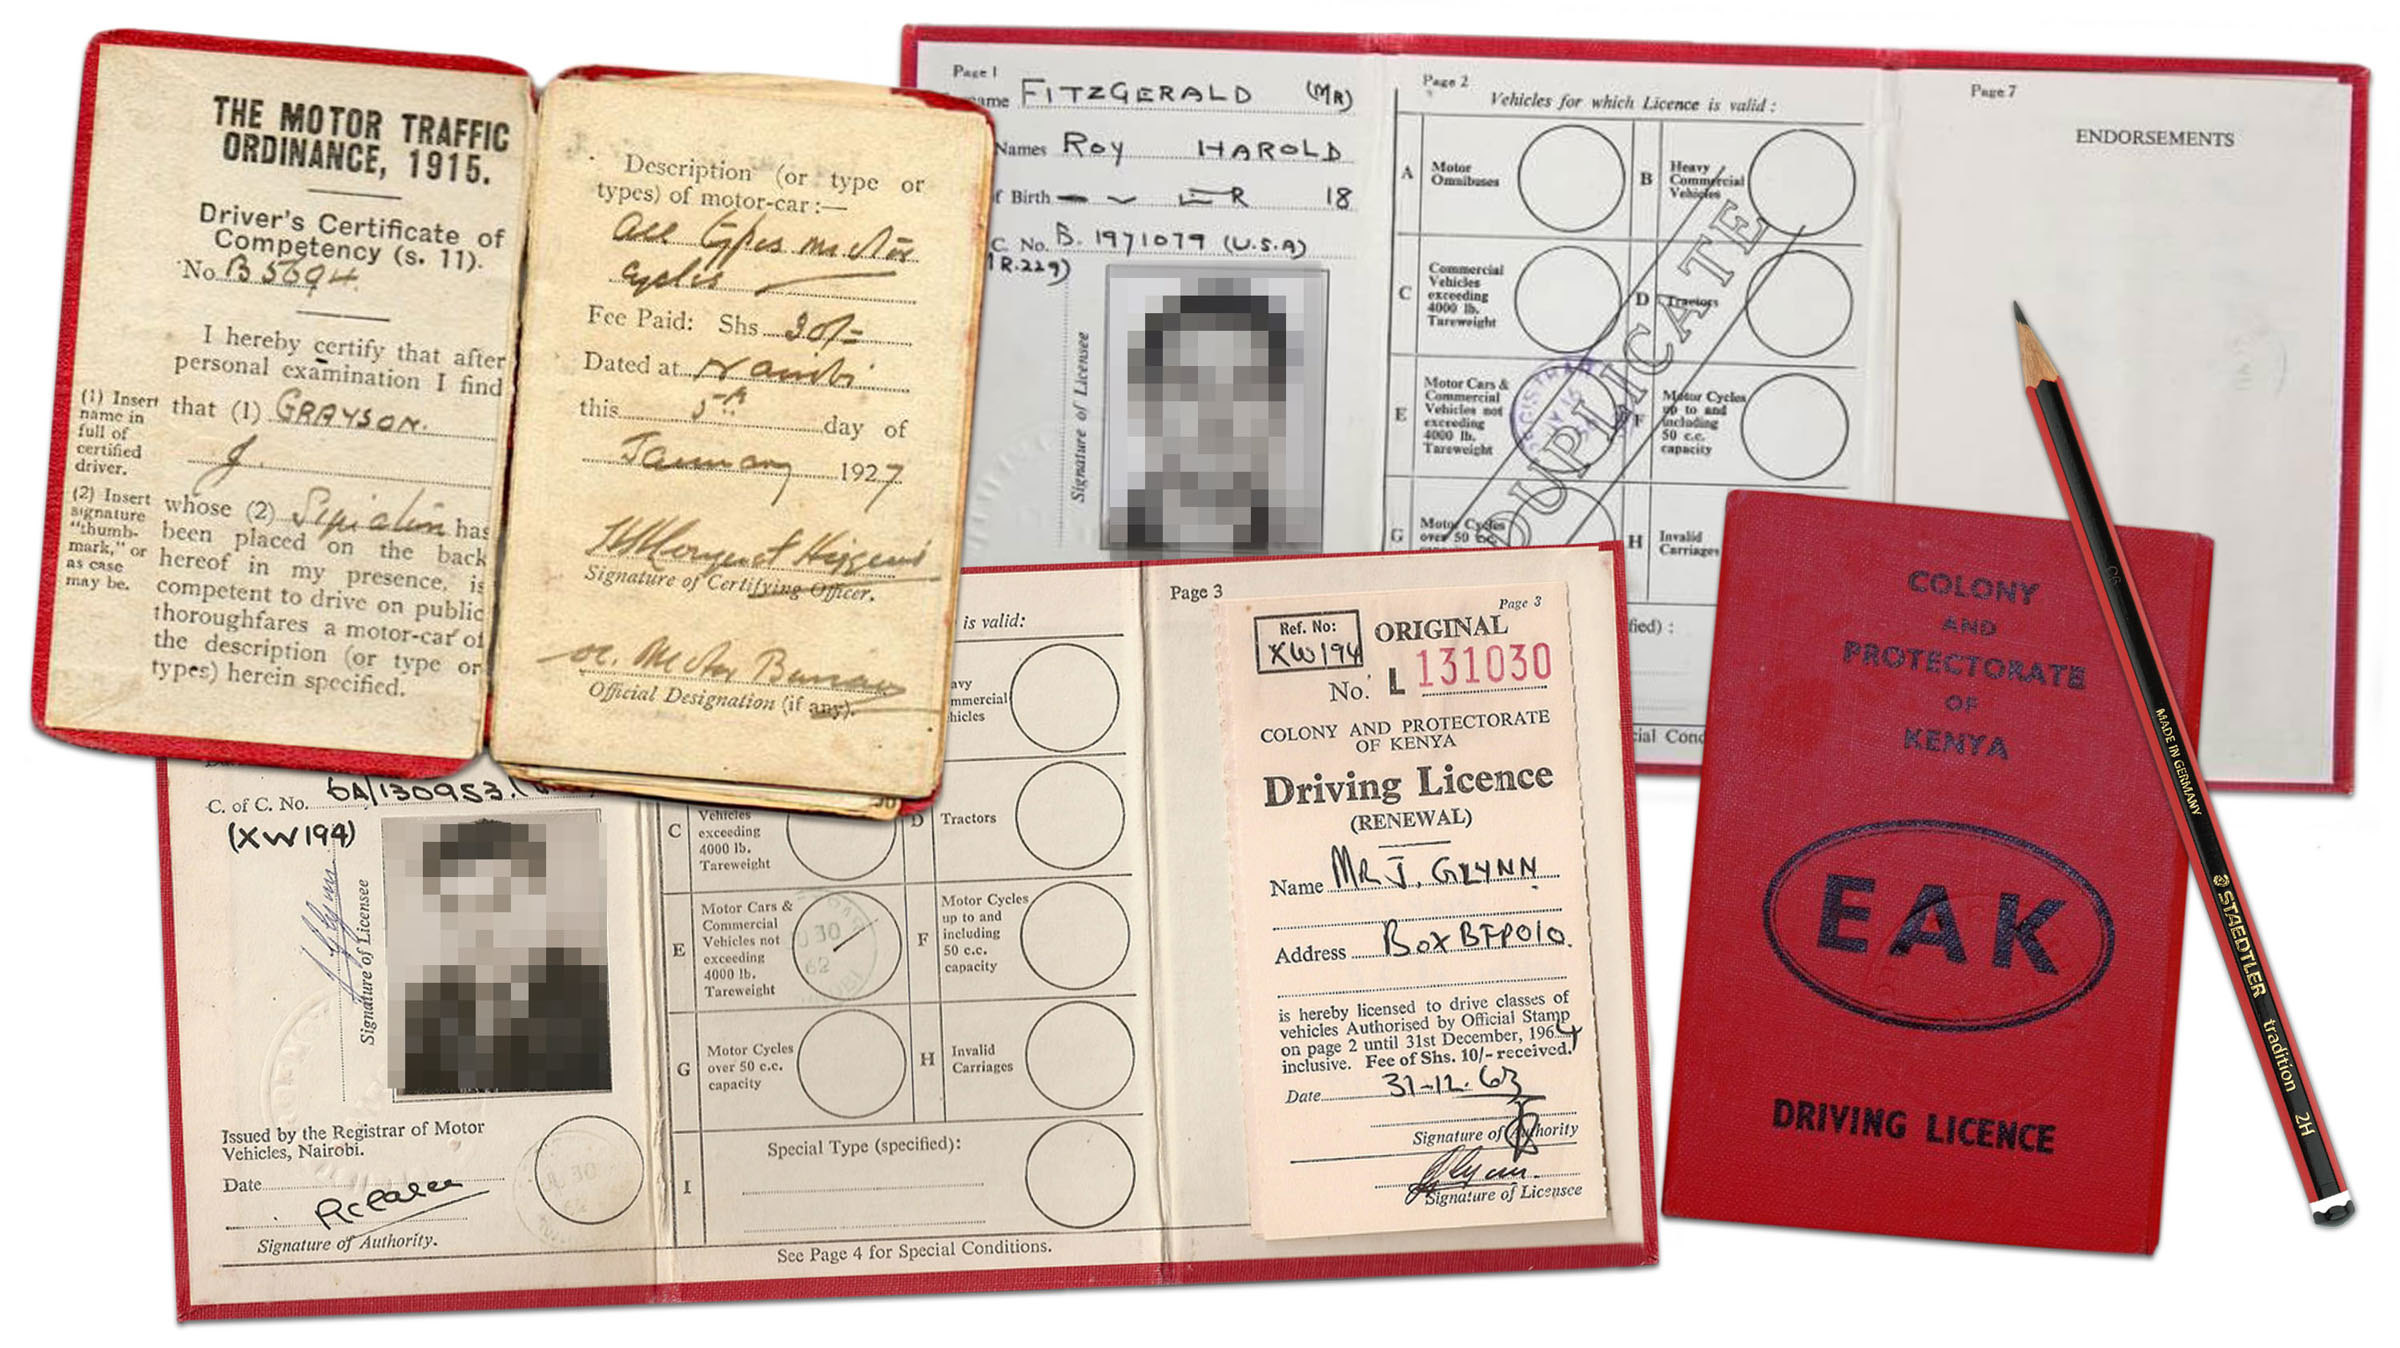 THE MOTOR TRAFFIC
ORDINANCE, 1915.
Driver's Certificate of
Competency (s. 11).
No. B 5694
I hereby certify that after
personal examination I find
that (1) GRAYSON.
J.
(1) Insert
name in
full of
certified
driver.
(2) Insert
signature
"thumb-
mark," or
as case
may be.
whose (2) has
been placed on the back
hereof in my presence, is
competent to drive on public
thoroughfares a motor-car of
the description (or type or
types) herein specified.
Description (or type or
types) of motor-car:—
All types motor
cycles
Fee Paid: Shs 30/-
Dated at Nairobi
this 5th day of
January 1927
Signature of Certifying Officer.
Official Designation (if any).
30
Page 1
name FITZGERALD (MR)
Names ROY HAROLD
f Birth 18
C. No. B. 1971079 (U.S.A)
R.229)
Signature of Licensee
Page 2
Vehicles for which Licence is valid:
A Motor
Omnibuses
B Heavy
Commercial
Vehicles
C Commercial
Vehicles
exceeding
4000 lb.
Tareweight
D Tractors
E Motor Cars &
Commercial
Vehicles not
exceeding
4000 lb.
Tareweight
F Motor Cycles
up to and
including
50 c.c.
capacity
G Motor Cycles
over 50 c.c.
H Invalid
Carriages
DUPLICATE
fied):
cial Cond
Page 7
ENDORSEMENTS
C. of C. No. 6A/130953.
(XW194)
Signature of Licensee
Issued by the Registrar of Motor
Vehicles, Nairobi.
Date
Signature of Authority.
is valid:
avy
mmercial
hicles
C Vehicles
exceeding
4000 lb.
Tareweight
D Tractors
E Motor Cars &
Commercial
Vehicles not
exceeding
4000 lb.
Tareweight
30
62
F Motor Cycles
up to and
including
50 c.c.
capacity
G Motor Cycles
over 50 c.c.
capacity
H Invalid
Carriages
I Special Type (specified):
See Page 4 for Special Conditions.
Page 3
Page 3
Ref. No:
XW194
ORIGINAL
No. L 131030
COLONY AND PROTECTORATE
OF KENYA
Driving Licence
(RENEWAL)
Name MR J. GLYNN
Address BOX BFPO10.
is hereby licensed to drive classes of
vehicles Authorised by Official Stamp
on page 2 until 31st December, 1964
inclusive. Fee of Shs. 10/- received.
Date 31-12-63
Signature of Authority
Signature of Licensee
COLONY
AND
PROTECTORATE
OF
KENYA
EAK
DRIVING LICENCE
MADE IN GERMANY
STAEDTLER tradition 2H